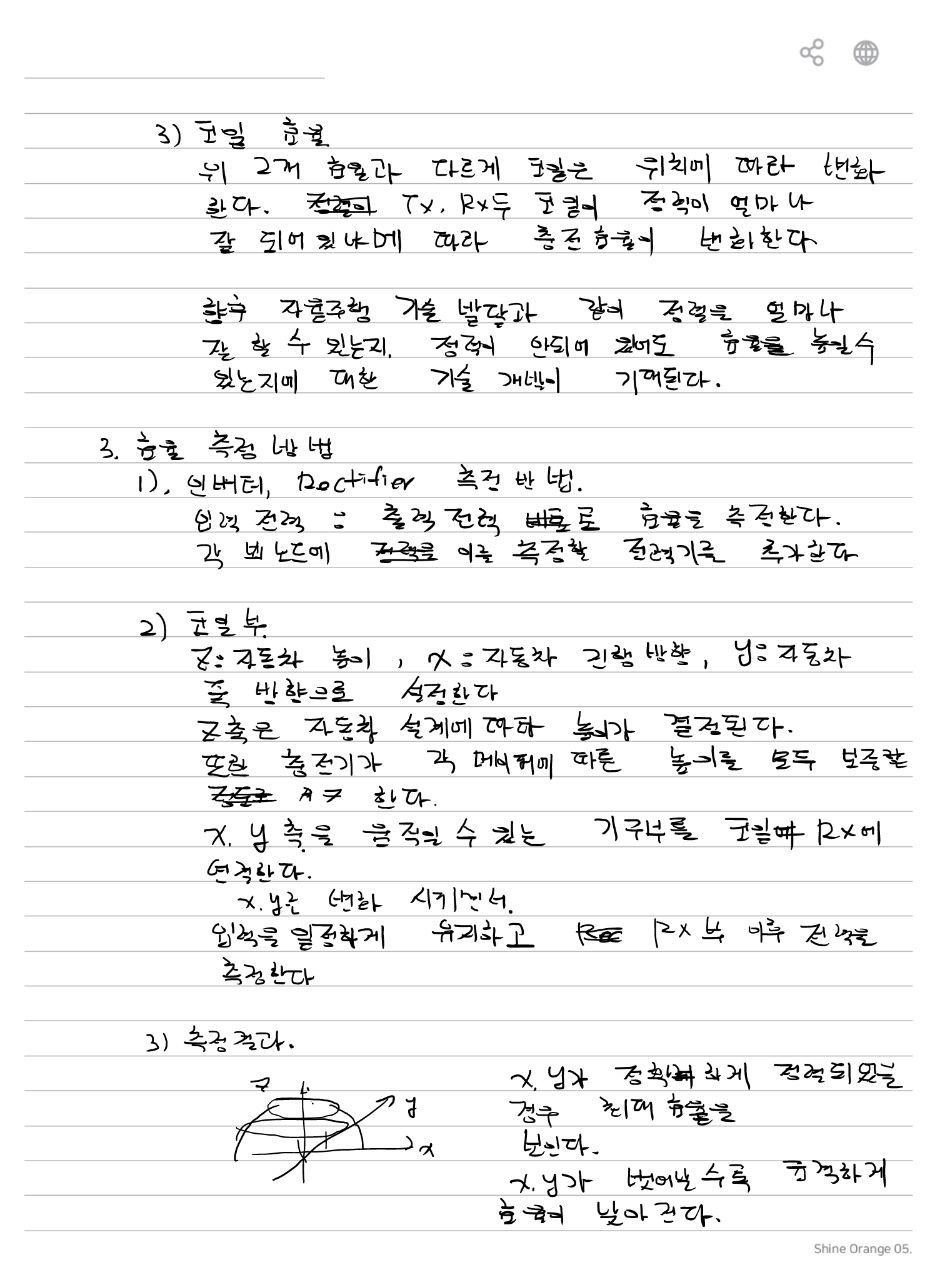 3) 코일 효율
위 2개 효율과 다르게 코일은 위치에 따라 변화
한다. Tx, Rx 두 코일이 정렬이 얼마나
잘 되어 있냐에 따라 충전효율이 변화한다
향후 자율주행 기술 발달과 같이 정렬을 얼마나
잘 할 수 있는지, 정렬이 안되어 있어도 효율을 높일수
있는지에 대한 기술 개발이 기대된다.
3. 효율 측정 방법
1). 인버터, Rectifier 측정 방법.
입력 전력 : 출력 전력 로 효율을 측정한다.
각 뷔 노드에 이를 측정할 전력기를 추가한다
2) 코일 부.
z: 자동차 높이, x: 자동차 진행 방향, y: 자동차
폭 방향으로 설정한다
z축은 자동차 설계에 따라 높이가 결정된다.
또한 충전기가 각 메이커에 따른 높이를 모두 보증할
한다.
x, y 축을 움직일 수 있는 기구부를 코일 Rx에
연결한다.
x, y를 변화 시키면서.
입력을 일정하게 유지하고 Rx 부 이후 전력을
측정한다
3) 측정결과.
z
y
x
x, y가 정확하게 정렬되있을
경우 최대 효율을
보인다.
x, y가 벗어날 수록 급격하게
효율이 낮아진다.
Shine Orange 05.